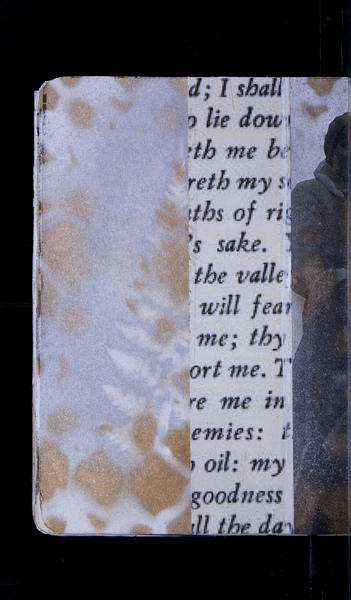 d; I shall
lie down
eth me be
reth my s
ths of rig
's sake.
the valle
will fear
me; thy
ort me. T
re me in
emies: t
oil: my
goodness
all the day